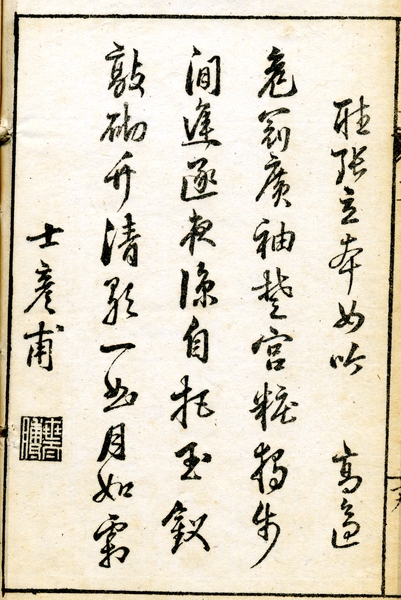 聽張立本女吟　高適
危冠廣袖楚宮粧獨步
閒庭逐夜涼自把玉釵
敲砌竹清歌一曲月如霜
士彥甫